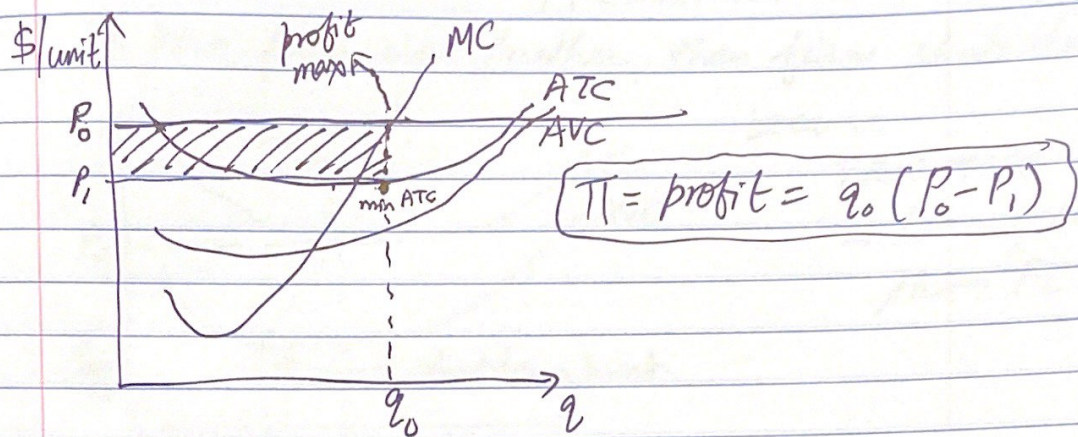 $/unit
profit
max
MC
ATC
AVC
P₀
P₁
min ATC
π = profit = q₀ (P₀-P₁)
q₀
q